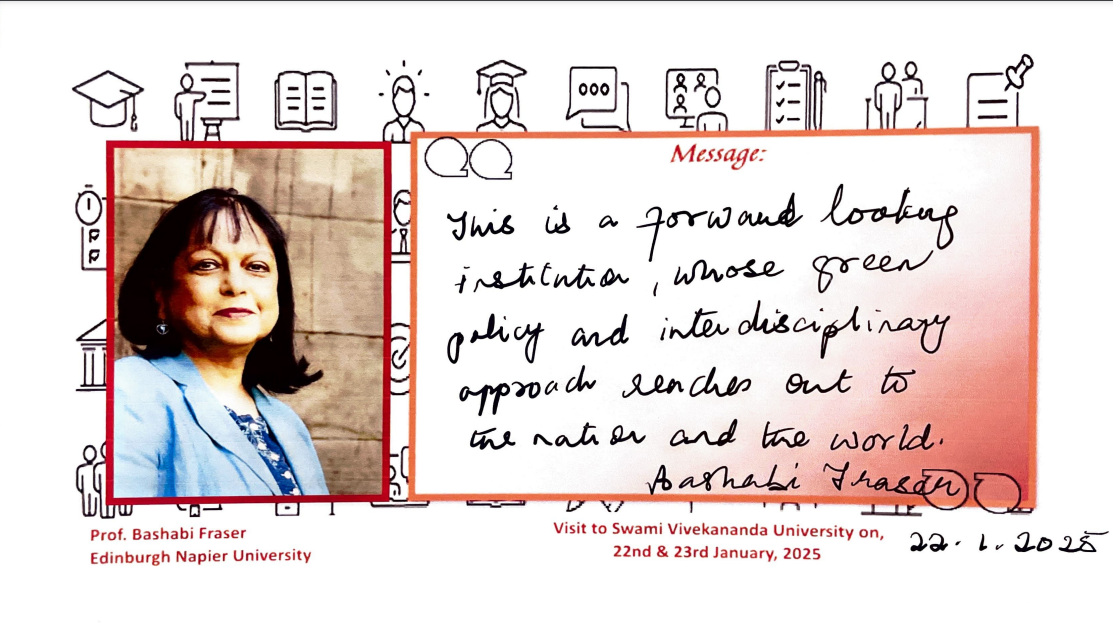 Message:
This is a forward looking
institution, whose green
policy and interdisciplinary
approach reaches out to
the nation and the world.
Bashabi Fraser
Prof. Bashabi Fraser
Edinburgh Napier University
Visit to Swami Vivekananda University on,
22nd & 23rd January, 2025
22.1.2025